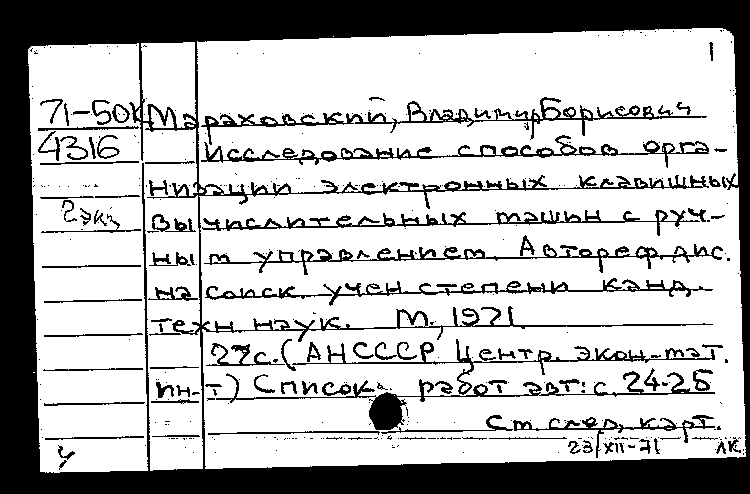 1
71-50К Мараховский, Владимир Борисович
4316 Исследование способов орга-
низации электронных клавишных
2 экз вычислительных машин с руч-
ным управлением. Автореф. дис.
на соиск. учен. степени канд.
техн. наук. М., 1971.
27с. (АН СССР Центр. экон.-мат.
ин-т) Список работ авт: с. 24-26
См. след. карт.
у 23/XII-71 ЛК